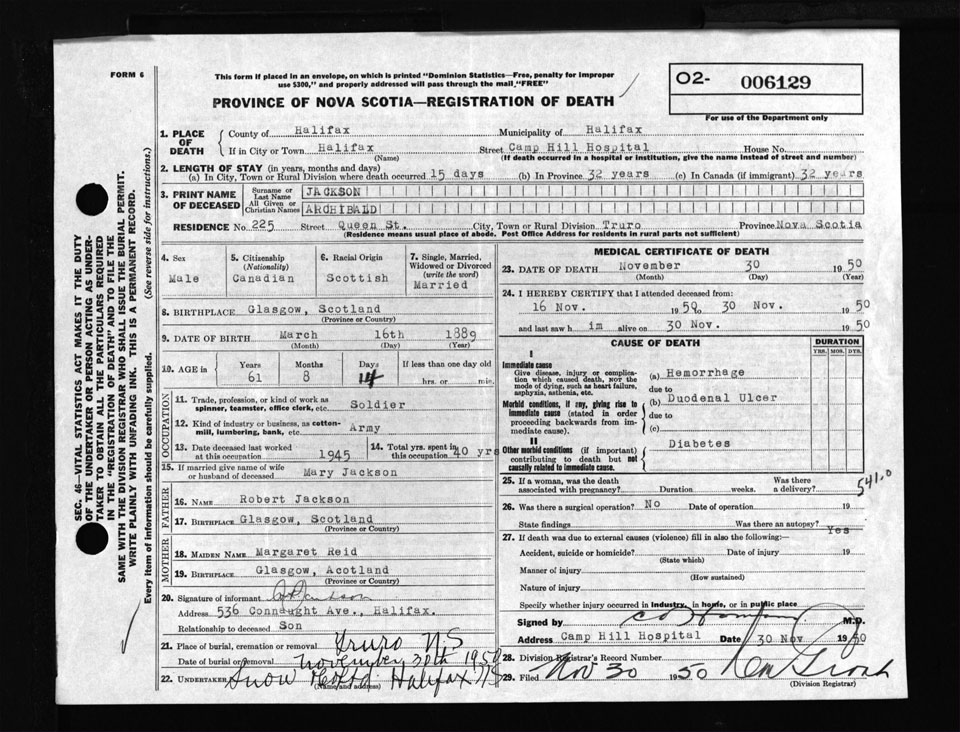 FORM 6
This form if placed in an envelope, on which is printed "Dominion Statistics—Free, penalty for improper
use $300," and properly addressed will pass through the mail "FREE"
O2- 006129
For use of the Department only
PROVINCE OF NOVA SCOTIA—REGISTRATION OF DEATH
SEC. 46—VITAL STATISTICS ACT MAKES IT THE DUTY
OF THE UNDERTAKER OR PERSON ACTING AS UNDER-
TAKER TO OBTAIN ALL THE PARTICULARS REQUIRED
IN THE "REGISTRATION OF DEATH" AND TO FILE THE
SAME WITH THE DIVISION REGISTRAR WHO SHALL ISSUE THE BURIAL PERMIT.
WRITE PLAINLY WITH UNFADING INK. THIS IS A PERMANENT RECORD.
Every item of information should be carefully supplied. (See reverse side for instructions.)
1. PLACE OF DEATH
County of Halifax Municipality of Halifax
If in City or Town Halifax Street Camp Hill Hospital House No.
(Name) (If death occurred in a hospital or institution, give the name instead of street and number)
2. LENGTH OF STAY (in years, months and days)
(a) In City, Town or Rural Division where death occurred 15 days (b) In Province 32 years (c) In Canada (if immigrant) 32 years
3. PRINT NAME OF DECEASED
Surname or Last Name JACKSON
All Given or Christian Names ARCHIBALD
RESIDENCE No. 225 Street Queen St. City, Town or Rural Division Truro Province Nova Scotia
(Residence means usual place of abode. Post Office Address for residents in rural parts not sufficient)
4. Sex
Male
5. Citizenship
(Nationality)
Canadian
6. Racial Origin
Scottish
7. Single, Married,
Widowed or Divorced
(write the word)
Married
8. BIRTHPLACE Glasgow, Scotland
(Province or Country)
9. DATE OF BIRTH March 16th 1889
(Month) (Day) (Year)
10. AGE in Years Months Days If less than one day old
61 8 14 hrs. or min.
OCCUPATION
11. Trade, profession, or kind of work as
spinner, teamster, office clerk, etc. Soldier
12. Kind of industry or business, as cotton-
mill, lumbering, bank, etc. Army
13. Date deceased last worked
at this occupation 1945
14. Total yrs. spent in
this occupation 40 yrs
15. If married give name of wife
or husband of deceased Mary Jackson
FATHER
16. NAME Robert Jackson
17. BIRTHPLACE Glasgow, Scotland
(Province or Country)
MOTHER
18. MAIDEN NAME Margaret Reid
19. BIRTHPLACE Glasgow, Acotland
(Province or Country)
20. Signature of informant
Address 536 Connaught Ave., Halifax.
Relationship to deceased Son
21. Place of burial, cremation or removal Truro N.S
Date of burial or removal November 30th 1950
22. UNDERTAKER Snow Halifax NS
(Name and address)
MEDICAL CERTIFICATE OF DEATH
23. DATE OF DEATH November 30 1950
(Month) (Day) (Year)
24. I HEREBY CERTIFY that I attended deceased from:
16 Nov. 1950 to 30 Nov. 1950
and last saw h im alive on 30 Nov. 1950
CAUSE OF DEATH
DURATION
YRS. MOS. DYS.
I
Immediate cause
Give disease, injury or complica-
tion which caused death, NOT the
mode of dying, such as heart failure,
asphyxia, asthenia, etc.
(a) Hemorrhage
due to
Morbid conditions, if any, giving rise to
immediate cause (stated in order
proceeding backwards from im-
mediate cause).
(b) Duodenal Ulcer
due to
(c)
II
Other morbid conditions (if important)
contributing to death but not
causally related to immediate cause.
Diabetes
541.0
25. If a woman, was the death
associated with pregnancy? Duration weeks. Was there
a delivery?
26. Was there a surgical operation? No Date of operation 19
State findings Was there an autopsy? Yes
27. If death was due to external causes (violence) fill in also the following:—
Accident, suicide or homicide? Date of injury 19
(State which)
Manner of injury
(How sustained)
Nature of injury
Specify whether injury occurred in industry, in home, or in public place
Signed by M.D.
Address Camp Hill Hospital Date 30 Nov 1950
28. Division Registrar's Record Number
29. Filed Nov 30 1950
(Division Registrar)